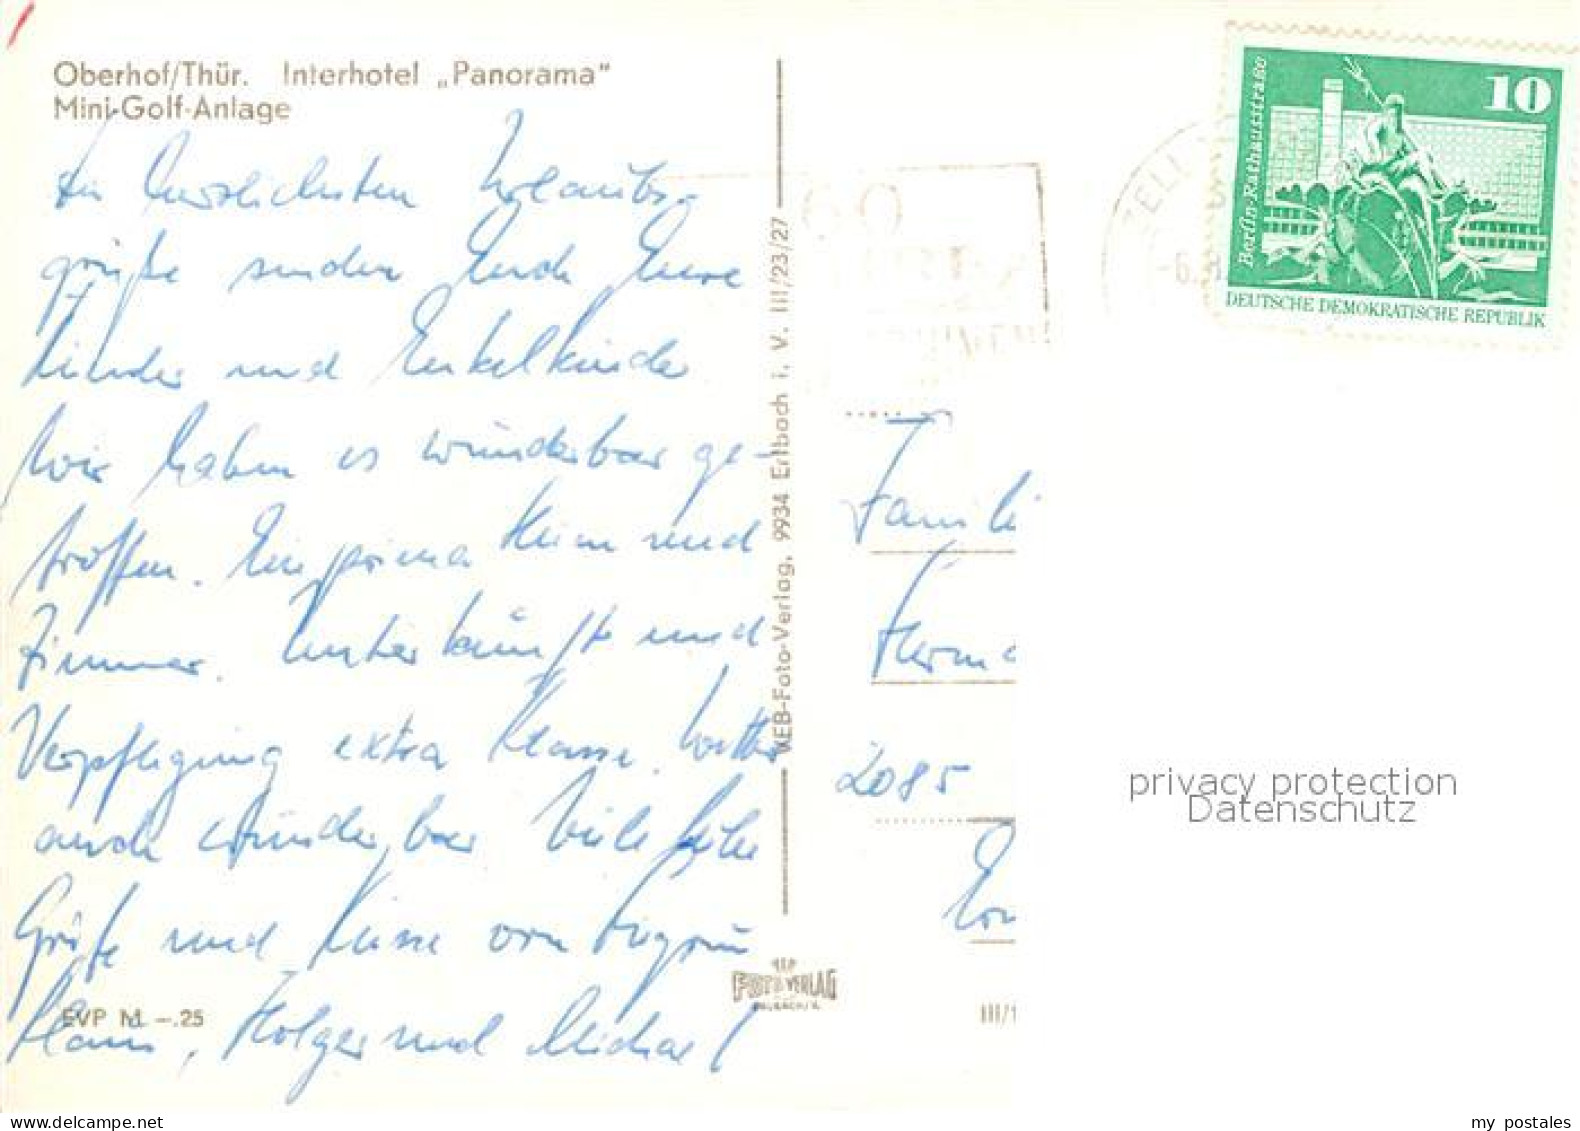 Oberhof/Thür. Interhotel „Panorama"
Mini-Golf-Anlage
Die herzlichsten Urlaubs-
grüße senden Euch Eure
Kinder und Enkelkinder
Wir haben es wunderbar ge-
troffen. Ein prima Heim und
Zimmer. Unterkunft und
Verpflegung extra Klasse. Wetter
auch wunderbar Viele liebe
Grüße und Küsse von
Klaus, Holger und Michael
EVP M -.25
VEB-Foto-Verlag, 9934 Erlbach i. V. III/23/27
FOTO VERLAG
III/1
Berlin-Rathausstraße
10
DEUTSCHE DEMOKRATISCHE REPUBLIK
ZELL
-6.
Famili
Herma
2085
privacy protection
Datenschutz
my postales